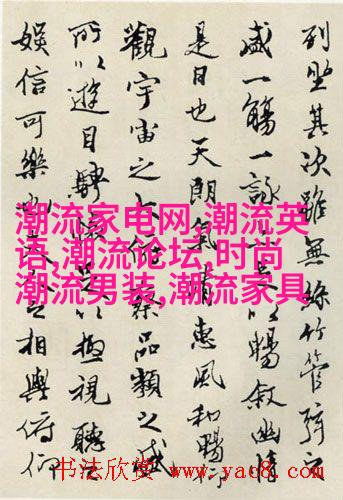 列坐其次雖無絲竹管絃之
盛一觴一詠足以暢敘幽情
是日也天朗氣清惠風和暢仰
觀宇宙之大俯察品類之盛
所以遊目騁懷足以極視聽之
娛信可樂也夫人之相與俯仰
潮流家电网,潮流英
语,潮流论坛,时尚
潮流男装,潮流家具
书法欣赏 www.yac8.com